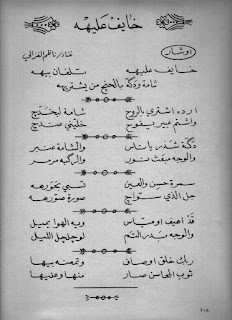 خايف عليهه
اوشار
غناء ناظم الغزالي
خايف عليهه تلفان بيهه
شامة ودكة بالحنج من يشتريهه
ارد اشتري بالروح شامة ليخدج
واشتم عبير يفوح خليني صندج
دكة شذر ياناس والشامة عنبر
والوجه مبعث نور والركبه مرمر
سمرة حسن والعين تسبي بحورهه
جل الذي سواج صورة صورهه
قد اهيف ومياس ويه الهوا يميل
والوجه بدر التم لوجلجل الليل
ربك خلق اوصاف وتمعنه بيها
ثوب المحاسن صار منها وعليها
١٠٨